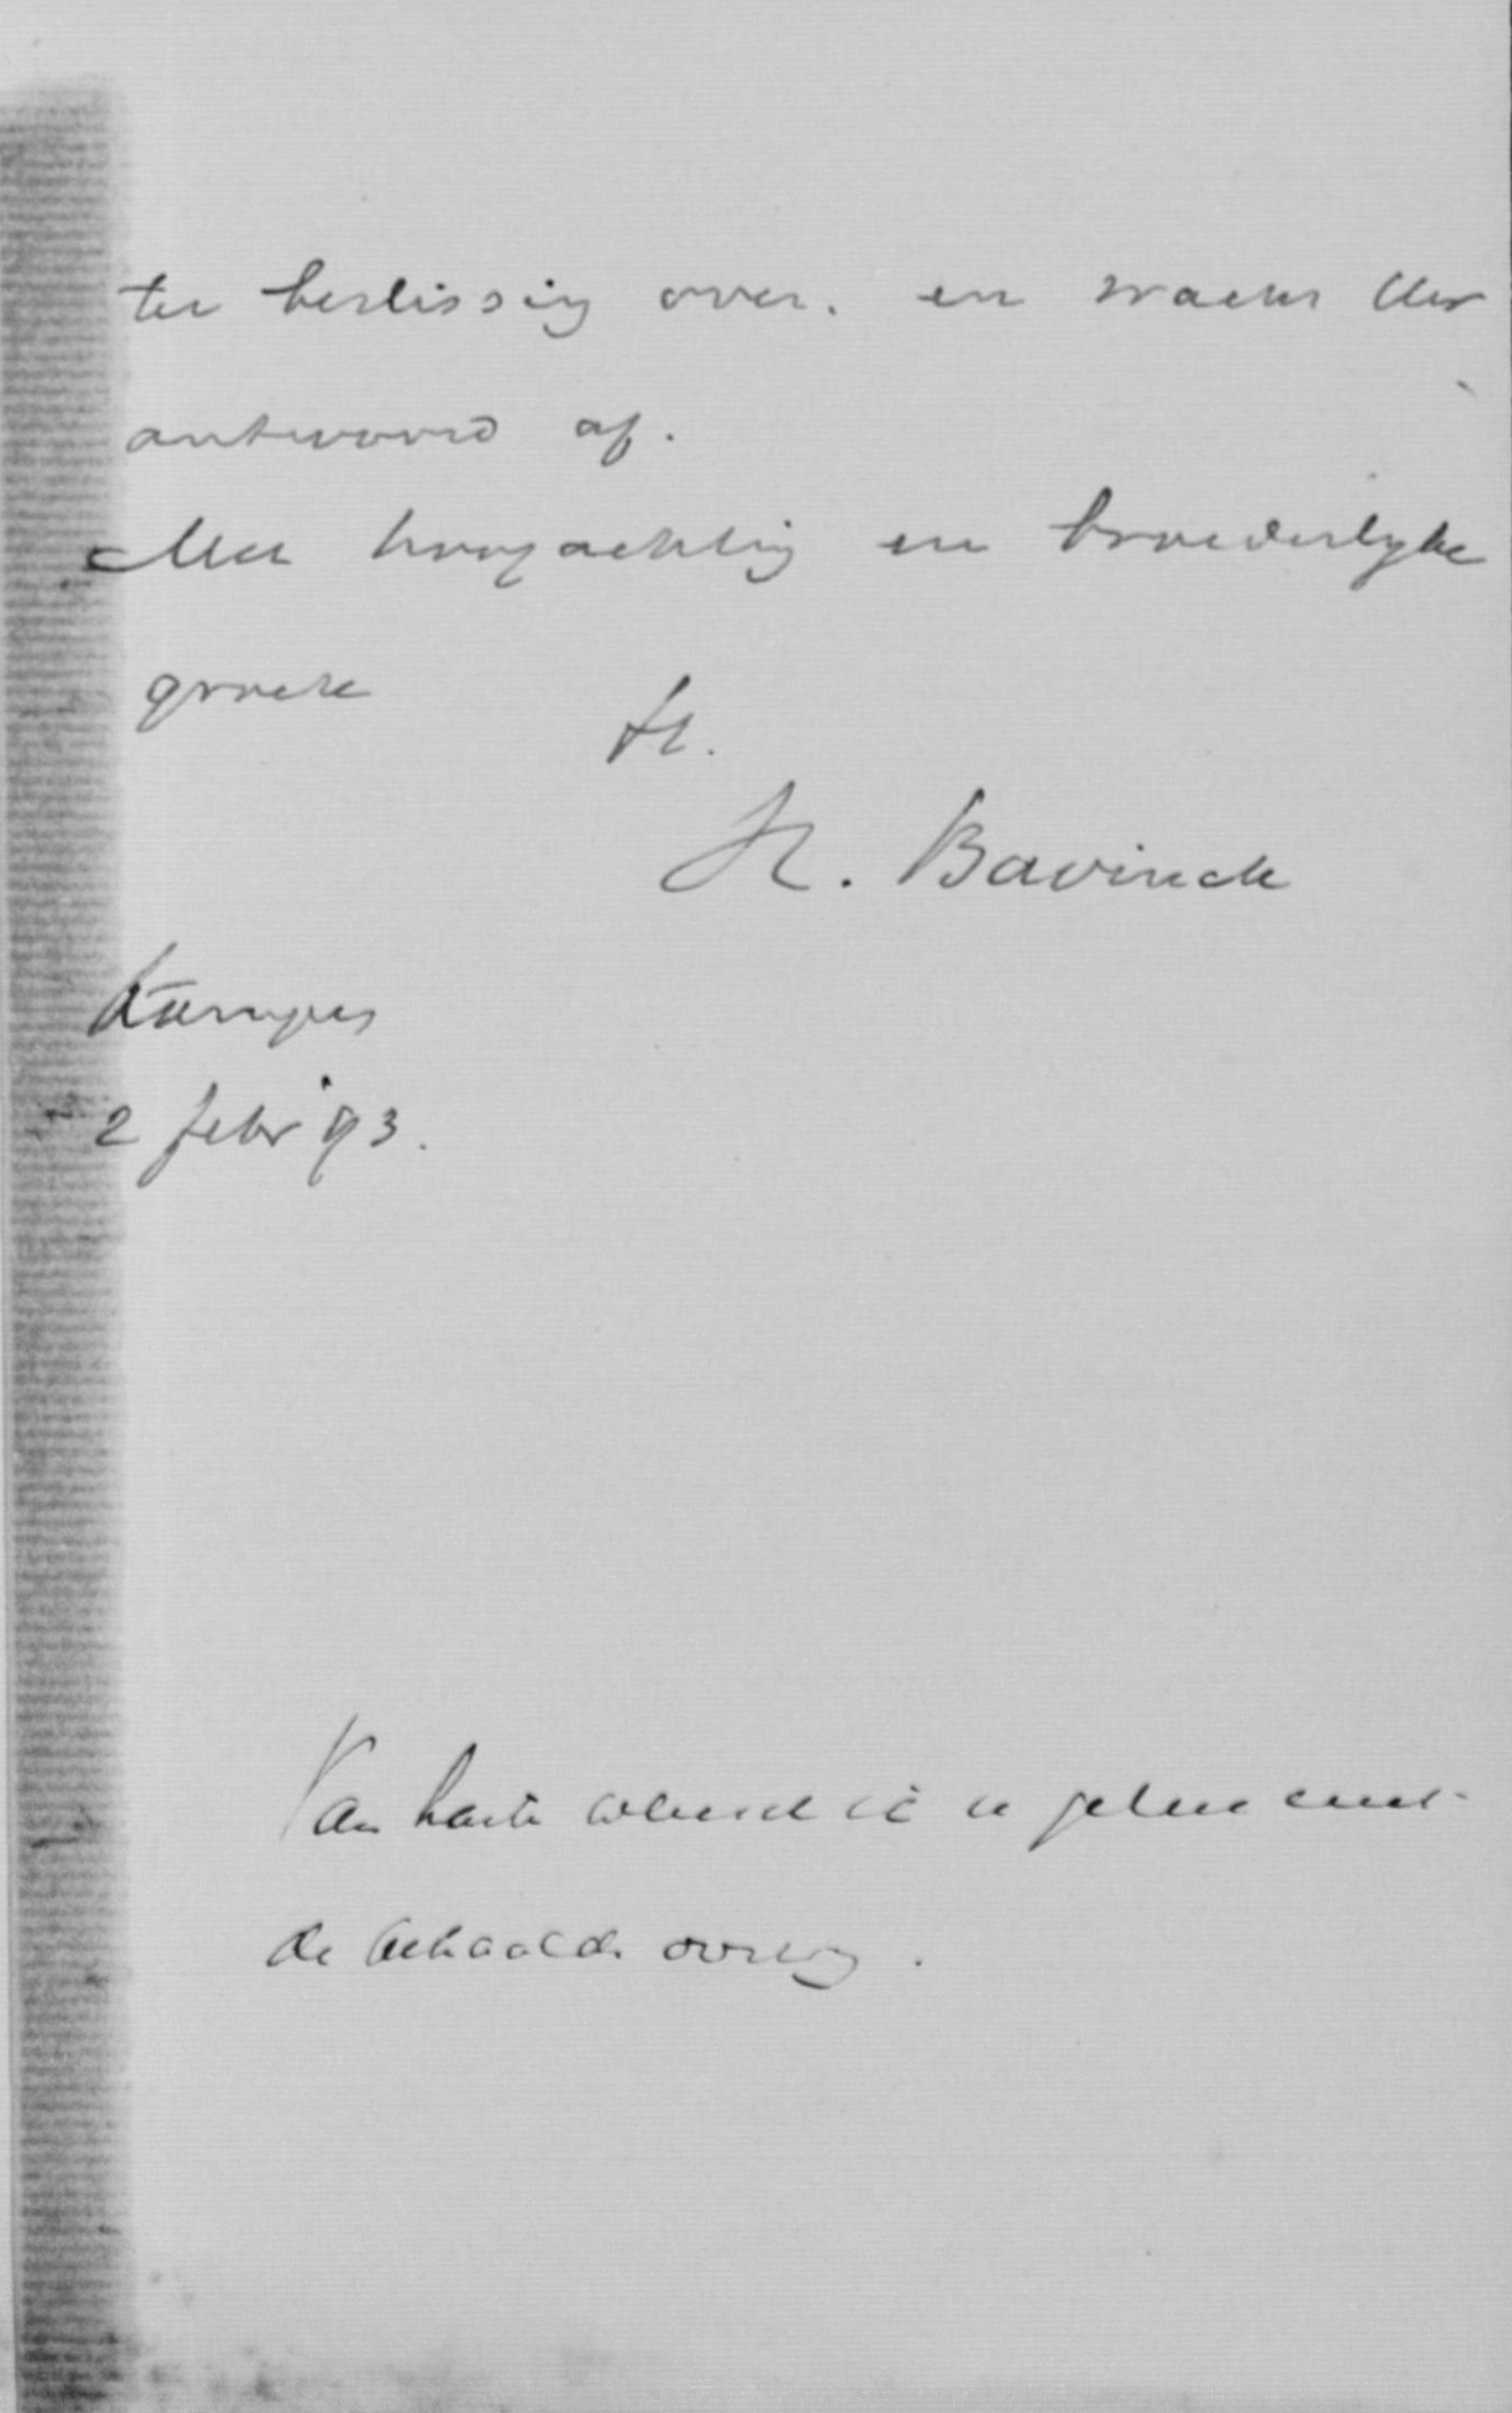 ter beslissing over. en wacht Uw
antwoord af.
Met hoogachting en broederlyke
groete
H. Bavinck
Kampen
2 febr 93.
Van harte wensch ik u geluk met
de behaalde